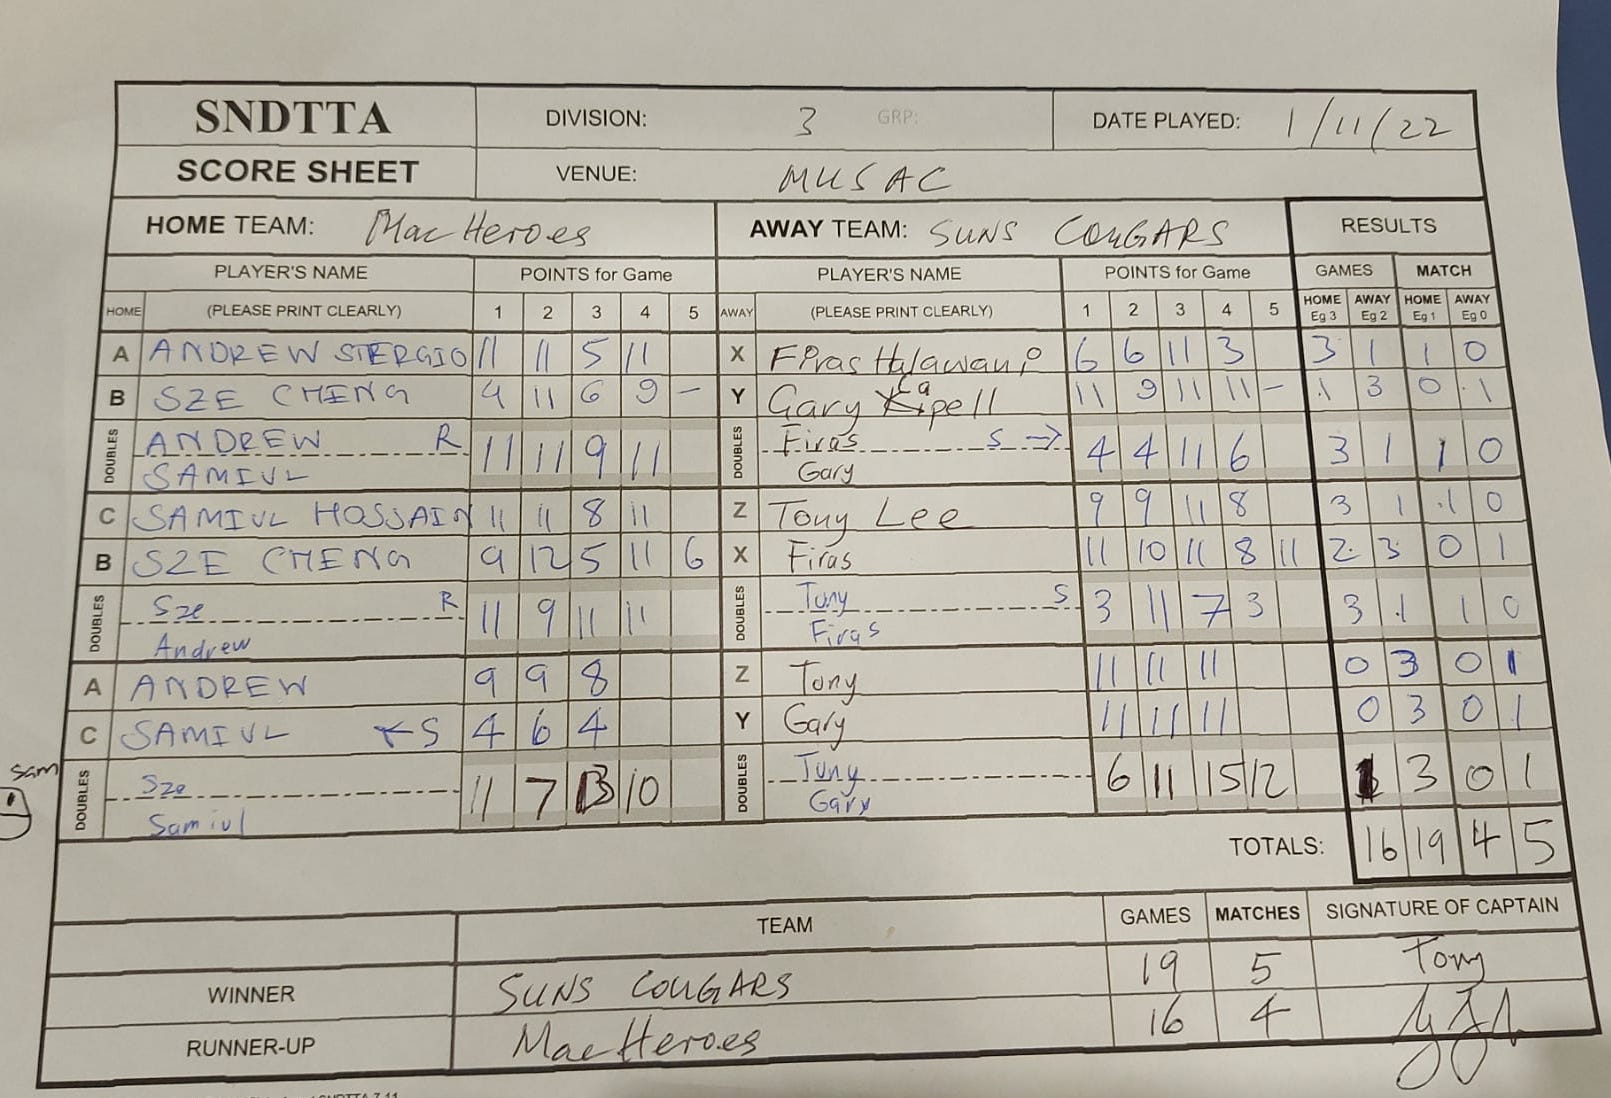 SNDTTA DIVISION: 3 GRP: DATE PLAYED: 1/11/22
SCORE SHEET VENUE: MUSAC
HOME TEAM: MacHeroes AWAY TEAM: SUNS COUGARS RESULTS
PLAYER'S NAME POINTS for Game PLAYER'S NAME POINTS for Game GAMES MATCH
HOME (PLEASE PRINT CLEARLY) 1 2 3 4 5 AWAY (PLEASE PRINT CLEARLY) 1 2 3 4 5 HOME Eg 3 AWAY Eg 2 HOME Eg 1 AWAY Eg 0
A ANDREW STERGIO 11 11 5 11 X Firas Halawani 6 6 11 3 3 1 1 0
B SZE CHENG 9 11 6 9 - Y Gary Capell 11 9 11 11 - 1 3 0 1
DOUBLES ANDREW R 11 11 9 11 DOUBLES Firas S → 4 4 11 6 3 1 1 0
SAMIUL Gary
C SAMIUL HOSSAIN 11 11 8 11 Z Tony Lee 9 9 11 8 3 1 1 0
B SZE CHENG 9 12 5 11 6 X Firas 11 10 11 8 11 2 3 0 1
DOUBLES Sze R 11 9 11 11 DOUBLES Tony S 3 11 7 3 3 1 1 0
Andrew Firas
A ANDREW 9 9 8 Z Tony 11 11 11 0 3 0 1
C SAMIUL ← S 4 6 4 Y Gary 11 11 11 0 3 0 1
sam
DOUBLES Sze 11 7 13 10 DOUBLES Tony 6 11 15 12 1 3 0 1
Samiul Gary
TOTALS: 16 19 4 5
TEAM GAMES MATCHES SIGNATURE OF CAPTAIN
WINNER SUNS COUGARS 19 5 Tony
RUNNER-UP MacHeroes 16 4